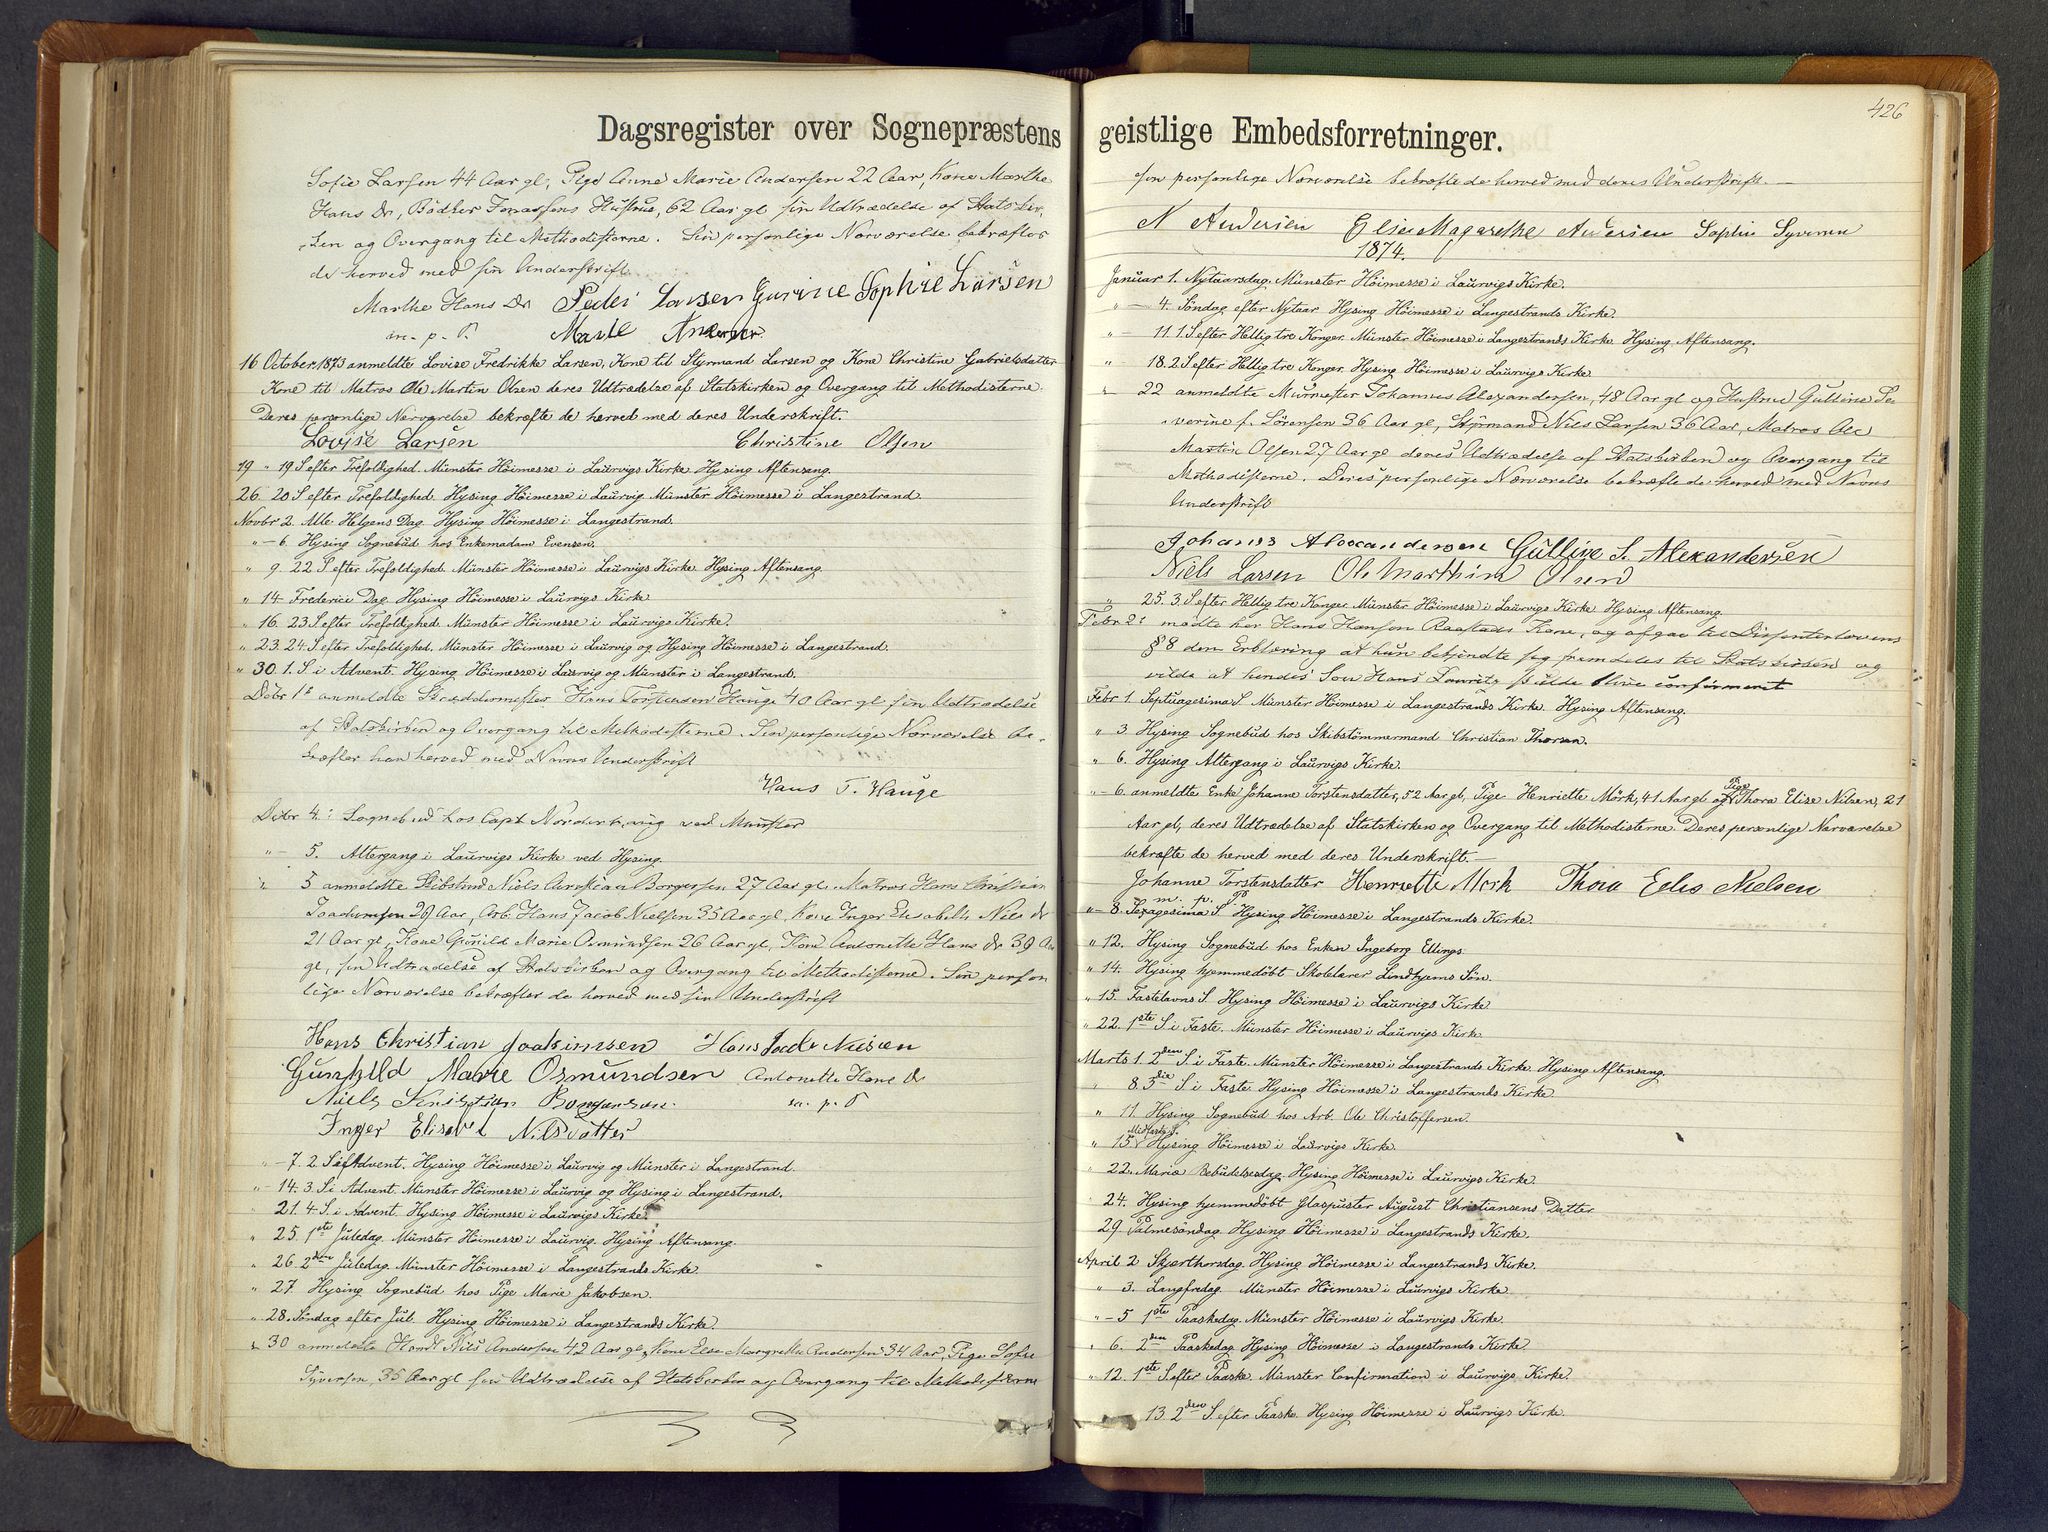 Dagsregister over Sognepræstens
Sofie Larsen 44 Aar gl, Pige Anne Marie Andersen 22 Aar, Kone Marthe
Hans Dr, Bødker Jonassens Hustrue, 62 Aar gl sin Udtrædelse af Statskir-
ken og Overgang til Methodisterne. Sin personlige Nærværelse bekræfter
de herved med sin Underskrift
Marthe Hans Dr Peder Larsen Gurine Sophie Larsen
m. p. P. Marie Andersen.
16 October 1873 anmeldte Lovise Fredrikke Larsen, Kone til Styrmand Larsen og Kone Christine Gabrielsdatter
Kone til Matros Ole Martin Olsen deres Udtrædelse af Statskirken og Overgang til Methodisterne.
Deres personlige Nærværelse bekræfte de herved med deres Underskrift.
Lovise Larsen Christine Olsen
19 " 19 S efter Trefoldighed. Münster Höimesse i Laurvigs Kirke Hysing Aftensang.
26. 20 S efter Trefoldighed. Hysing Höimesse i Laurvig Münster Höimesse i Langestrand.
Novbr 2. Alle Helgens Dag. Hysing Höimesse i Langestrand.
" - 6. Hysing Sognebud hos Enkemadam Evensen.
" 9. 22 S efter Trefoldighed. Münster Höimesse i Laurvigs Kirke. Hysing Aftensang.
" 14 Frederici Dag. Hysing Höimesse i Laurvigs Kirke
" 16. 23 S efter Trefoldighed. Münster Höimesse i Laurvigs Kirke.
" 23. 24. S efter Trefoldighed. Münster Höimesse i Laurvig og Hysing Höimesse i Langestrand.
" 30. 1. S. i Advent. Hysing Höimesse i Laurvig og Münster i Langestrand.
Debr 1ste anmeldte Skræddermester Hans Torstensen Hauge 40 Aar gl sin Udtrædelse
af Statskirken og Overgang til Methodisterne. Sin personlige Nærværelse be-
kræfter han herved med Navns Underskrift
Hans T. Hauge
Debr 4. Sognebud hos Capt. ved Münster
" - 5. Altergang i Laurvigs Kirke ved Hysing.
" 5 anmeldte Niels Christian Borgersen 27 Aar gl. Matros Hans Christian
Joachimsen 29 Aar, Arb. Hans Jacob Nielsen 35 Aar gl, Kone Inger Elisabeth Nils Dr
21 Aar gl, Kone Gunild Marie Osmundsen 26 Aar gl, Kone Antonette Hans Dr 39 Aar
gl, sin Udtrædelse af Statskirken og Overgang til Methodisterne. Sin person
lige Nærværelse bekræfter de herved med sin Underskrift
Hans Christian Joakimsen Hans Jacob Nielsen
Gunhild Marie Osmundsen Antonette Hans Dr
Niels Kristian Borgersen. m. p. P
Inger Elisabet Nilsdatter
" - 7. 2. S i Advent. Hysing Höimesse i Laurvig og Münster i Langestrand.
" - 14. 3. S i Advent. Münster Höimesse i Laurvig og Hysing i Langestrand.
" 21. 4 S. i Advent. Hysing Höimesse i Laurvigs Kirke
" 25. 1ste Juledag. Münster Höimesse i Laurvig. Hysing Aftensang
" 26. 2den Juledag. Münster Höimesse i Langestrands Kirke.
" 27. Hysing Sognebud hos Pige Marie Jakobsen.
" 28. Søndag efter Jul. Hysing Höimesse i Langestrands Kirke
" 30 anmeldte Nils Andersen 42 Aar gl, Kone Else Margrethe Andersen 34 Aar, Pige Sofie
Syversen, 35 Aar gl sin Udtrædelse af Statskirken og Overgang til Methodisterne
426
geistlige Embedsforretninger.
sin personlige Nærværelse bekræfte de herved med deres Underskrift.—
N Andersen Elise Magarethe Andersen Sophie Syversen
1874.
Januar 1. Nytaarsdag. Münster Höimesse i Laurvigs Kirke.
" — 4. Søndag efter Nytaar Hysing Höimesse i Langestrands Kirke.
" - 11. 1 S efter Hellig tre Konger. Münster Höimesse i Langestrands Kirke. Hysing Aftensang.
" 18. 2 S efter Hellig tre Konger. Hysing Höimesse i Laurvigs Kirke.
" 22 anmeldte Murmester Johannes Alexandersen, 48 Aar gl og Hustrue Gulline Se-
verine f. Sörensen 36 Aar gl, Styrmand Niels Larsen 36 Aar, Matros Ole
Martin Olsen 27 Aar gl deres Udtrædelse af Statskirken og Overgang til
Methodisterne. Deres personlige Nærværelse bekræfte de herved med Navns
Underskrift
Johans Alexandersen Gulline S. Alexandersen
Niels Larsen Ole Marthin Olsen
" 25. 3. S efter Hellig tre Konger. Münster Höimesse i Laurvigs Kirke Hysing Aftensang.
Febr 2: mødte her Hans Hansen Raastads Kone, og afgav til Dissenterlovens
§ 8 den Erklæring at hun bekjendte sig fremdeles til Statskirken og
vilde at hendes Søn Hans Lauritz skulde blive confirmeret
Febr 1. Septuagesima S. Münster Höimesse i Langestrands Kirke. Hysing Aftensang.
" 3. Hysing Sognebud hos Skibstömmermand Christian Thorsen.
" 6. Hysing Altergang i Laurvigs Kirke.
" - 6. anmeldte Enke Johanne Torstensdatter, 52 Aar gl, Pige Henriette Mörk, 41 Aar gl og Pige Thora Elise Nilsen, 21
Aar gl, deres Udtrædelse af Statskirken og Overgang til Methodisterne. Deres personlige Nærværelse
bekræfte de herved med deres Underskrift.—
Johanne Torstensdatter Henriette Mörk Thora Elise Nielsen
m. p. P.
" - 8. Sexagesima S. Hysing Höimesse i Langestrands Kirke.
" 12. Hysing Sognebud hos Enken Ingeborg Ellings.
" 14. Hysing hjemmedöbt Skolelærer Lindhjems Sön.
" 15. Fastelavns S. Hysing Höimesse i Laurvigs Kirke
" 22. 1ste S i Faste. Münster Höimesse i Laurvigs Kirke.
Marts 1. 2den S. i Faste. Münster Höimesse i Langestrands Kirke. Hysing Aftensang.
" 8. 3die S i Faste. Hysing Höimesse i Langestrands Kirke
" 11 Hysing Sognebud hos Arb. Ole Christoffersen.
" 15. Midfaste S. Hysing Höimesse i Laurvigs Kirke.
" 22. Mariæ Bebudelsesdag. Hysing Höimesse i Laurvigs Kirke.
" 24. Hysing hjemmedöbt Glaspuster August Christiansens Datter
" 29. Palmesöndag. Hysing Höimesse i Langestrands Kirke.
April 2 Skjærthorsdag. Hysing Höimesse i Langestrands Kirke.
" 3. Langfredag. Münster Höimesse i Laurvigs Kirke
" - 5 1ste Paaskedag. Münster Höimesse i Laurvigs Kirke.
" 6. 2den Paaskedag Hysing Höimesse i Langestrands Kirke
" 12. 1ste S efter Paaske. Münster Confirmation i Laurvigs Kirke.
13. 2den S. efter Paaske. Hysing Höimesse i Laurvigs Kirke.